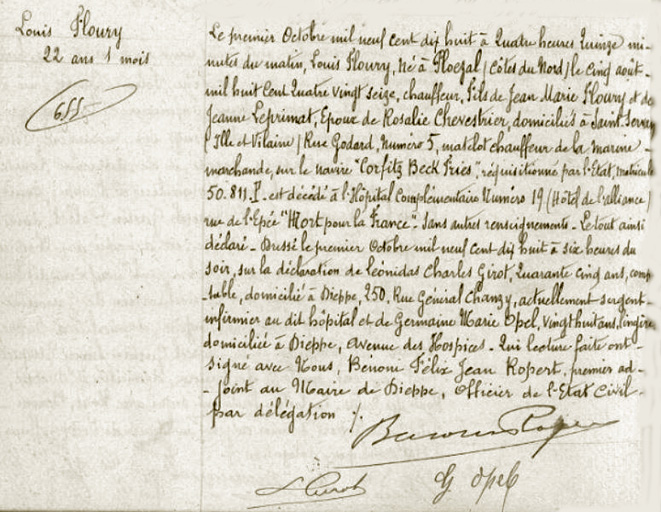 Louis Floury
22 ans 1 mois
655
Le premier Octobre mil neuf cent dix huit à Quatre heures Quinze mi-
nutes du matin, Louis Floury, Né à Ploezal (Côtes du Nord) le cinq août
mil huit Cent Quatre vingt seize, chauffeur, Fils de Jean Marie Floury et de
Jeanne Leprimat, Epoux de Rosalie Chevestrier, domiciliés à Saint Servan
(Ille et Vilaine) Rue Godard, Numéro 5, matelot chauffeur de la marine
marchande, sur le navire "Corfitz Beck Fries", réquisitionné par l'Etat, matricule
50.811.P. est décédé à l'Hôpital Complémentaire Numéro 19 (Hôtel de l'alliance)
rue de l'Epée "Mort pour la France". Sans autres renseignements. Le tout ainsi
déclaré. Dressé le premier Octobre mil neuf cent dix huit à six heures du
soir, sur la déclaration de Léonidas Charles Girot, Quarante cinq ans, comp-
table, domicilié à Dieppe, 250, Rue Général Chanzy, actuellement sergent
infirmier au dit hôpital et de Germaine Marie Opel, vingt huit ans, lingère
domiciliée à Dieppe, Avenue des Hospices. Qui lecture faite ont
signé avec Nous, Bénoni Félix Jean Ropert, premier ad-
joint au Maire de Dieppe, Officier de l'Etat Civil
par délégation ./.
Benoni Ropert
L Girot
G Opel